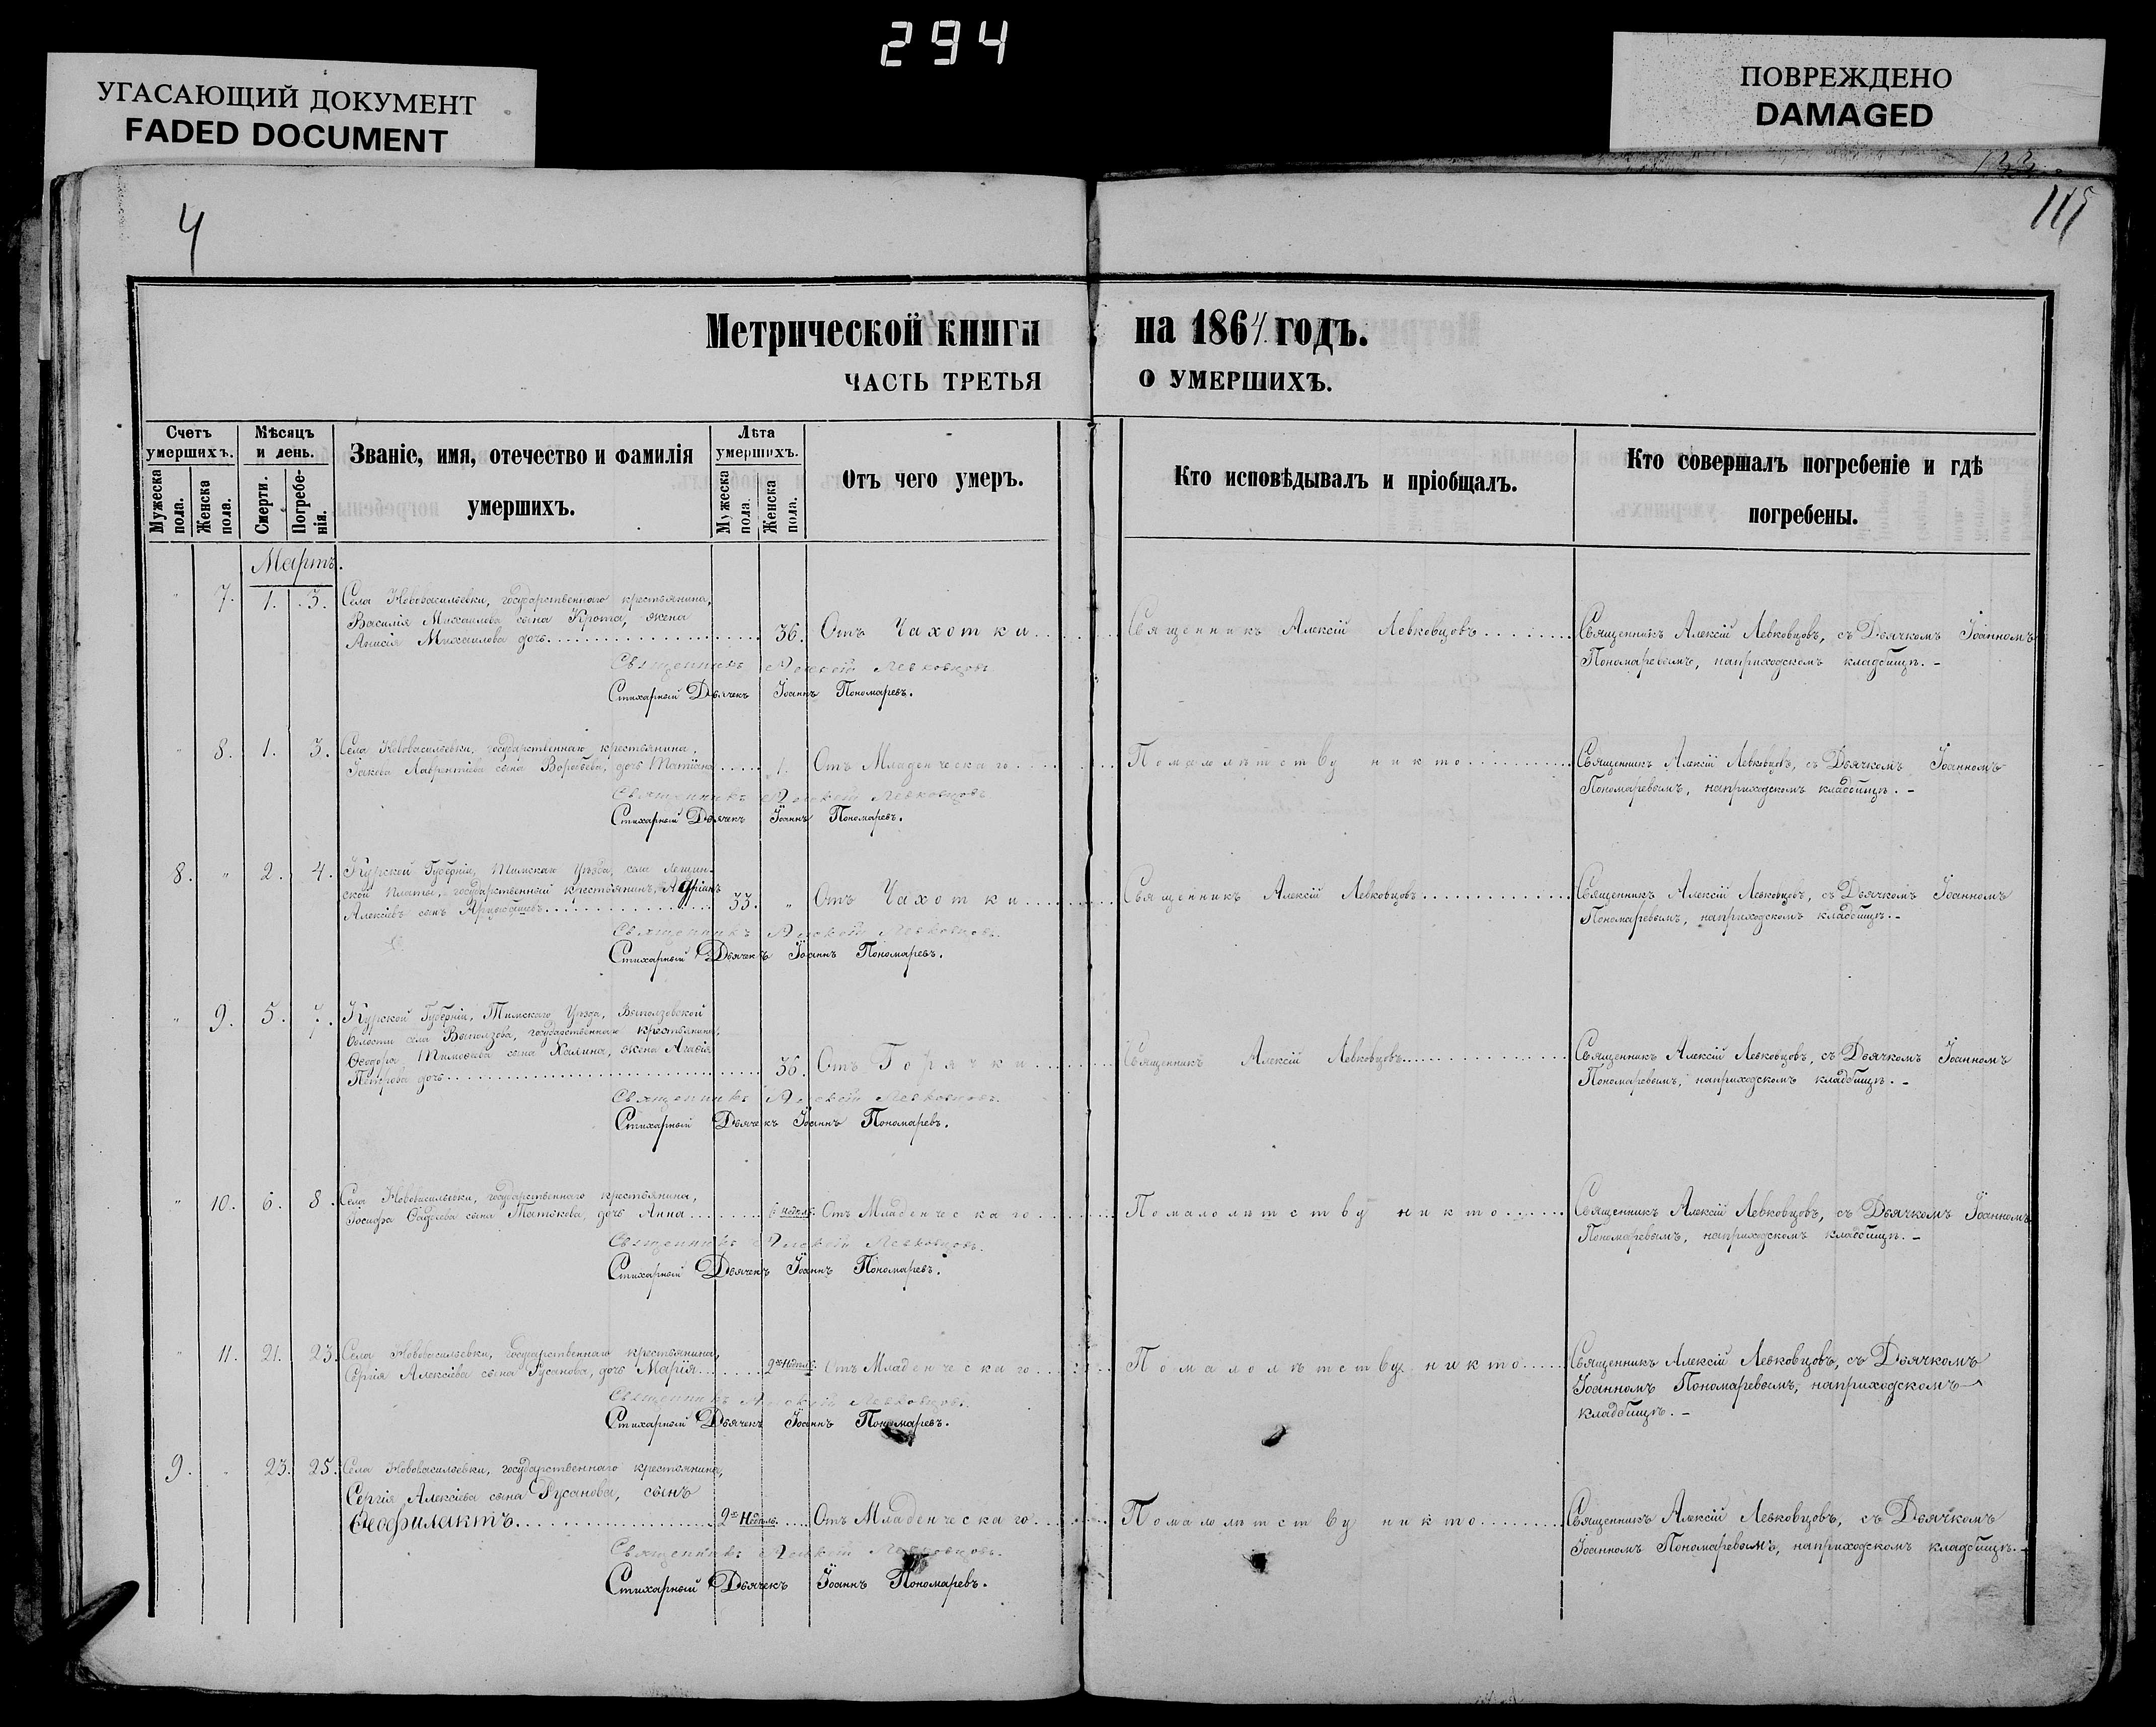 294
УГАСАЮЩИЙ ДОКУМЕНТ
FADED DOCUMENT
ПОВРЕЖДЕНО
DAMAGED
4
Метрической книги на 1864 годъ.
ЧАСТЬ ТРЕТЬЯ О УМЕРШИХЪ.
Счетъ умершихъ.
Мужеска пола.
Женска пола.
Мѣсяцъ и день.
Смерти.
Погребенія.
Званіе, имя, отечество и фамилія умершихъ.
Лѣта умершихъ.
Мужеска пола.
Женска пола.
Отъ чего умеръ.
Кто исповѣдывалъ и пріобщалъ.
Кто совершалъ погребеніе и гдѣ погребены.
Мартъ.
" 7. 1. 3. Села Нововасильевки, государственнаго крестьянина,
Василія Михаилова сына Крота, жена
Анисія Михаилова дочь. 36. Отъ Чахотки. Священникъ Алексій Левковцовъ. Священникъ Алексій Левковцовъ, съ Дьячкомъ Іоанномъ
Пономаревымъ, наприходскомъ кладбищѣ. –
Священникъ Алексій Левковцовъ
Стихарный Дьячекъ Іоаннъ Пономаревъ.
" 8. 1. 3. Села Нововасильевки, государственнаго крестьянина,
Іакова Лаврентіева сына Воробьева, дочь Татіана. 1. Отъ Младенческаго. Помалолѣтству никто. Священникъ Алексій Левковцовъ, съ Дьячкомъ Іоанномъ
Пономаревымъ, наприходскомъ кладбищѣ. –
Священникъ Алексій Левковцовъ
Стихарный Дьячекъ Іоаннъ Пономаревъ.
8. " 2. 4. Курской Губерніи, Тимскаго Уѣзда, села
ской Платы, государственный крестьянинъ, Адріанъ
Алексіевъ сынъ 33. " Отъ Чахотки. Священникъ Алексій Левковцовъ. Священникъ Алексій Левковцовъ, съ Дьячкомъ Іоанномъ
Пономаревымъ, наприходскомъ кладбищѣ. –
Священникъ Алексій Левковцовъ.
Стихарный Дьячекъ Іоаннъ Пономаревъ.
" 9. 5. 7. Курской Губерніи, Тимскаго Уѣзда, Выползовской
Волости села Выползова, государственнаго крестьянина,
Ѳеодора Тимоѳеева сына Калина, жена Агаѳія
Петрова дочь. 36. Отъ Горячки. Священникъ Алексій Левковцовъ. Священникъ Алексій Левковцовъ, съ Дьячкомъ Іоанномъ
Пономаревымъ, наприходскомъ кладбищѣ. –
Священникъ Алексій Левковцовъ.
Стихарный Дьячекъ Іоаннъ Пономаревъ.
" 10. 6. 8. Села Нововасильевки, государственнаго крестьянина,
Іосифа Ѳадѣева сына Татькова, дочь Анна. 6 недѣль. Отъ Младенческаго. Помалолѣтству никто. Священникъ Алексій Левковцовъ, съ Дьячкомъ Іоанномъ
Пономаревымъ, наприходскомъ кладбищѣ. –
Священникъ Алексій Левковцовъ.
Стихарный Дьячекъ Іоаннъ Пономаревъ.
" 11. 21. 23. Села Нововасильевки, государственнаго крестьянина,
Сергія Алексіева сына Русанова, дочь Марія. 2хъ недѣль. Отъ Младенческаго. Помалолѣтству никто. Священникъ Алексій Левковцовъ, съ Дьячкомъ
Іоанномъ Пономаревымъ, наприходскомъ
кладбищѣ. –
Священникъ Алексій Левковцовъ.
Стихарный Дьячекъ Іоаннъ Пономаревъ.
9. " 23. 25. Села Нововасильевки, государственнаго крестьянина,
Сергія Алексіева сына Русанова, сынъ
Ѳеофилактъ. 2хъ недѣль. Отъ Младенческаго. Помалолѣтству никто. Священникъ Алексій Левковцовъ, съ Дьячкомъ
Іоанномъ Пономаревымъ, наприходскомъ кладбищѣ. –
Священникъ Алексій Левковцовъ.
Стихарный Дьячекъ Іоаннъ Пономаревъ.